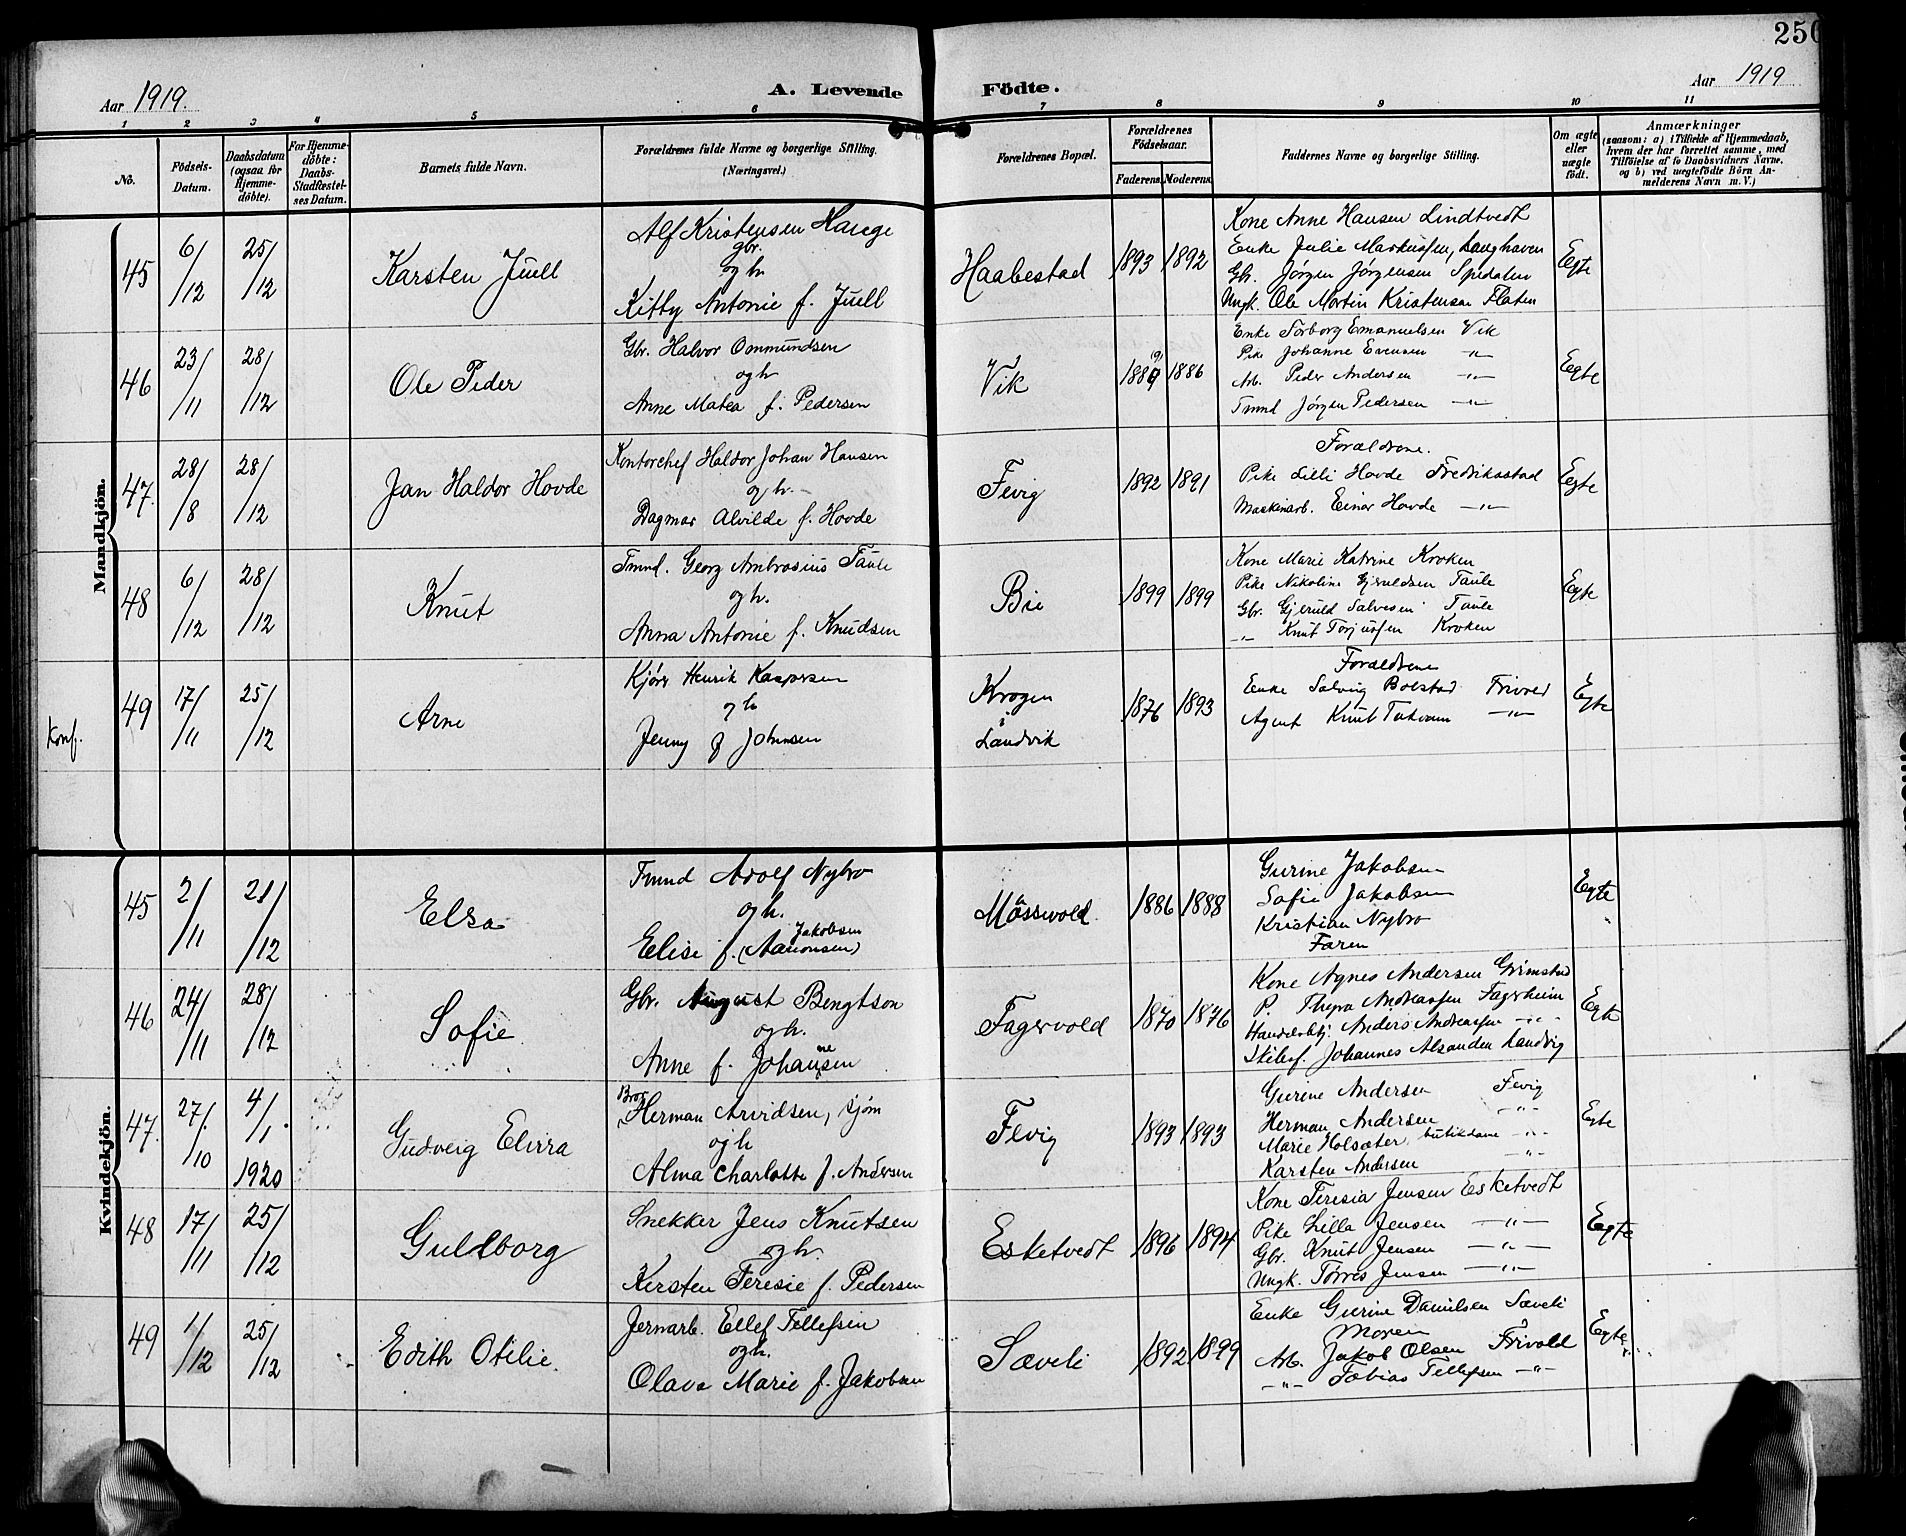 250
Aar 1919.
A. Levende Födte.
Aar 1919
1 2 3 4 5 6 7 8 9 10 11
No.
Födsels-Datum.
Daabsdatum (ogsaa for Hjemmedöbte).
For Hjemmedöbte: Daabs-Stadfæstelses Datum.
Barnets fulde Navn.
Forældrenes fulde Navne og borgerlige Stilling. (Næringsvei.)
Forældrenes Bopæl.
Forældrenes Födselsaar.
Faderens. Moderens.
Faddernes Navne og borgerlige Stilling.
Om ægte eller uægte födt.
Anmærkninger
(saasom: a) i Tilfælde af Hjemmedaab, hvem der har forrettet samme, med Tilföielse af to Daabsvidners Navne. og b) ved uægtefödte Börn Anmelderens Navn m. V.)
Mandkjön.
45 6/12 25/12 Karsten Juell
Alf Kristensen Hauge
gbr.
og h
Kitty Antonie f. Juell
Haabestad 1893 1892
Kone Anne Hansen Lindtvedt
Enke Julie Markussen, Langhaven
Gbr. Jörgen Jörgensen Spedalen
Ungk. Ole Martin Kristensen Flaten
Egte
46 23/11 28/12 Ole Peder
Gbr. Halvor Ommundsen
og h
Anne Matea f. Pedersen
Vik 1889 1886
Enke Torborg Emanuelsen Vik
Pike Johanne Evensen -"-
Arb. Peder Andersen -"-
Tmnd Jörgen Pedersen -"-
Egte
47. 28/8 28/12 Jan Haldor Hovde
Kontorchef Haldor Johan Hansen
og h.
Dagmar Alvilde f. Hovde
Fevig 1892 1891
Forældrene.
Pike Lilli Hovde Fredrikastad
Maskinarb. Einar Hovde -"-
Egte
48 6/12 28/12 Knut
Tmnd. Georg Ambrosius Taule
og h.
Anna Antonie f. Knudsen
Bie 1899 1899
Kone Marie Katrine Kroken
Pike Nikoline Gjeruldsen Taule
Gbr. Gjeruld Salvesen Taule
-"- Knut Torjussen Kroken
Egte
Konf.
49 17/11 25/12 Arne
Kjörer Henrik Kaspersen
og h
Jenny f Johnsen
Krogen
i
Landvik
1876 1893
Forældrene
Enke Solvig Bolstad Frivold
Agent Knut -"-
Egte
Kvindekjön.
45 2/11 21/12 Elsa
Tmnd Adolf Nybro
og h.
Jakobsen
Elise f. (Aanonsen)
Mössvold. 1886 1888
Gurine Jakobsen
Sofie Jakobsen
Kristian Nybro
Faren
Egte
46 24/11 28/12 Sofie
Gbr. August Bengtson
og h.
Anne f. Johannesen
Fagervold 1870 1876
Kone Agnes Andersen Grimstad
P. Thyra Andreassen Fagerheim
Anders Andreassen -"-
Johannes Landvig
Egte
47. 27/10 4/1 1920 Gudveig Elvira
Herman Arvidsen, sjöm
og h
Alma Charlotte f. Andersen
Fevig 1893 1893
Gurine Andersen Fevig
Herman Andersen -"-
Marie Holsæter, butikdame -"-
Karsten Andersen -"-
Egte
48 17/11 25/12 Guldborg
Snekker Jens Knutsen
og h.
Kirsten Teresie f. Pedersen
Esketvedt 1896 1894
Kone Teresia Jensen Esketvedt
Pike Lilla Jensen -"-
Gbr. Knut Jensen -"-
Ungk. Törres Jensen -"-
Egte
49 1/12 25/12 Edith Otilie.
Jernarb. Ellef Tellefsen
og h.
Olava Marie f. Jakobsen
Sæveli 1892 1899
Enke Gurine Danielsen Sæveli
Moren
Arb. Jakob Olsen Frivold
-"- Tobias Tellefsen -"-
Egte